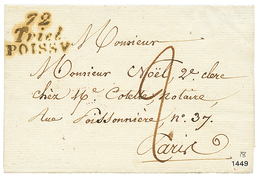 72
Triel
POISSY
Monsieur
2
Monsieur Noël 2e. clerc
chez Me Cotelle, notaire,
rue Poissonnière n°. 37.
Paris
1449